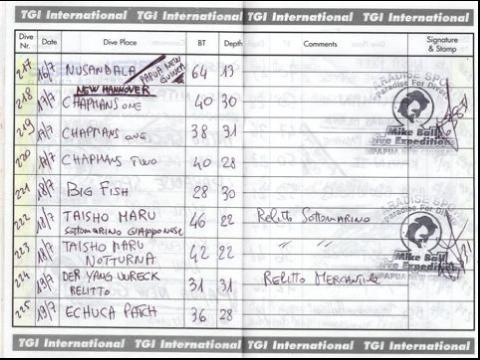 TGI International TGI International TGI International TGI International
Dive Nr. Date Dive Place BT Depth Comments Signature & Stamp
217 16/7 NUSANDALA PAPUA NEW GUINEA 64 13
NEW HANNOVER
218 17/7 CHAPMANS ONE 40 30
219 17/7 CHAPMANS ONE 38 31
220 17/7 CHAPMANS TWO 40 28
221 18/7 BIG FISH 28 30
222 18/7 TAISHO MARU 46 22 Relitto Sottomarino
SOTTOMARINO GIAPPONESE
223 18/7 TAISHO MARU 42 22 " "
NOTTURNA
224 19/7 DER YANG WRECK 31 31 RELITTO MERCANTILE
RELITTO
225 19/7 ECHUCA PATCH 36 28
PARADISE SPORT
Paradise For Divers
Mike Ball
Dive Expeditions
PAPUA NEW GUINEA
PARADISE SPORT
Paradise For Divers
Mike Ball
Dive Expeditions
PAPUA NEW GUINEA
TGI International TGI International TGI International TGI International